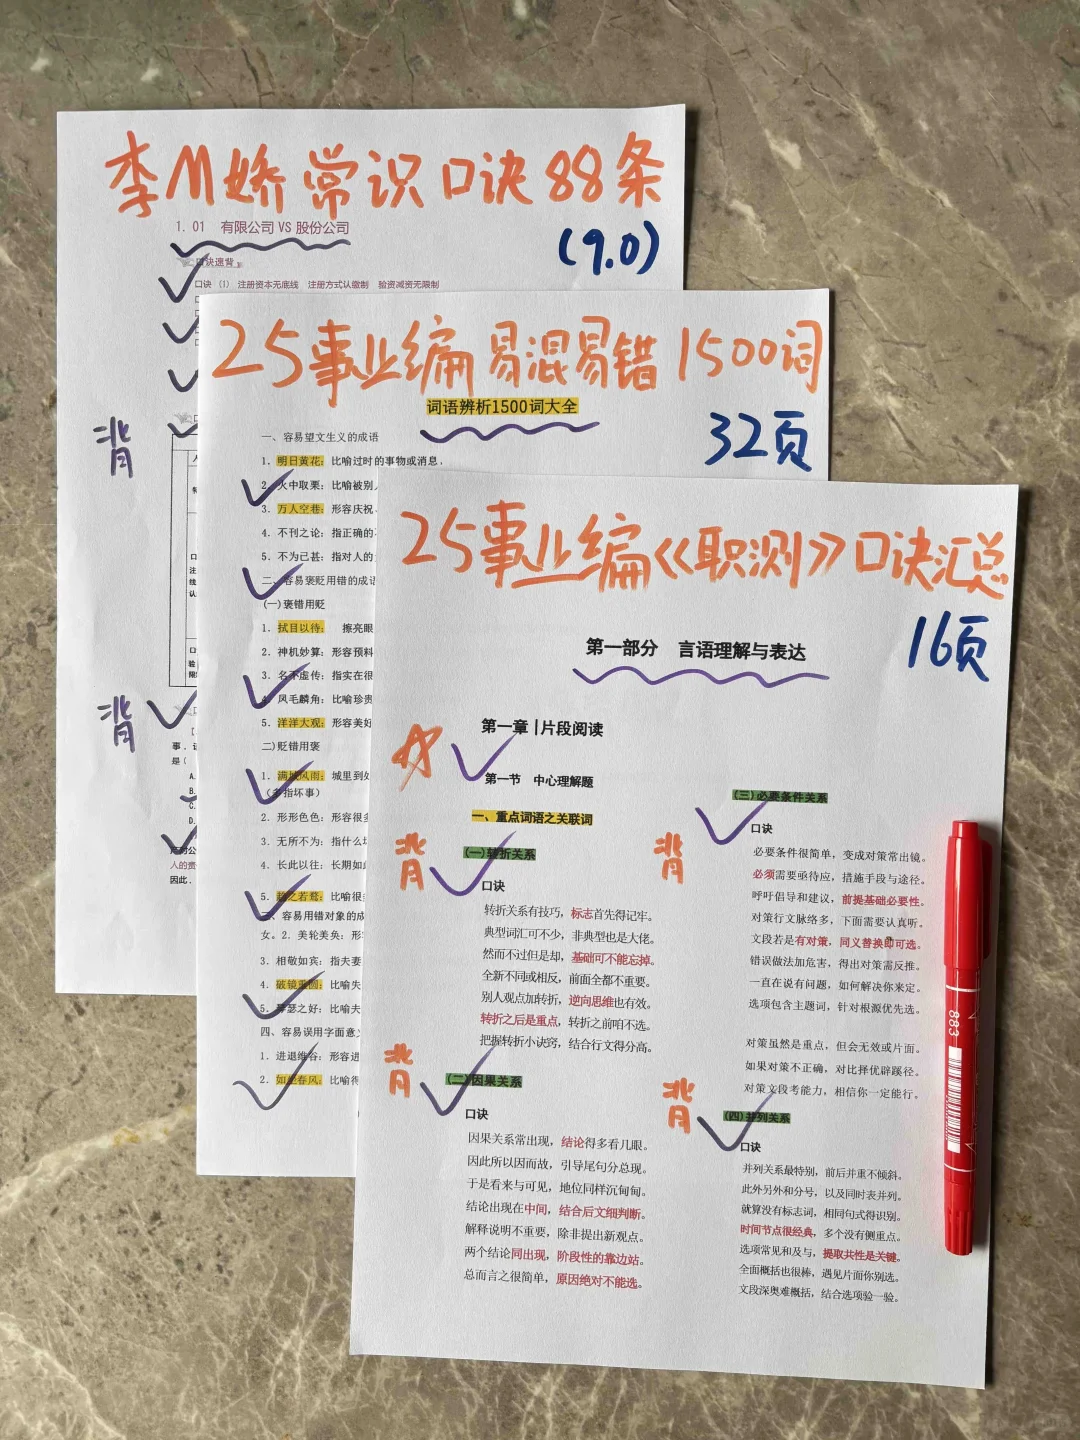 李M娇常识口诀88条
(9.0)
1.01 有限公司 VS 股份公司
口诀速背
口诀 (1) 注册资本无底线 注册方式认缴制 验资减资无限制
背
背
人的责
因此.
25事业编易混易错1500词
32页
词语辨析1500词大全
一、容易望文生义的成语
1. 明日黄花: 比喻过时的事物或消息.
2. 火中取栗: 比喻被别
3. 万人空巷: 形容庆祝、
4. 不刊之论: 指正确的
5. 不为已甚: 指对人的
二、容易褒贬用错的成语
(一)褒错用贬
1. 拭目以待: 擦亮眼
2. 神机妙算: 形容预料
3. 名不虚传: 指实在很
4. 凤毛麟角: 比喻珍贵
5. 洋洋大观: 形容美好
二)贬错用褒
1. 满城风雨: 城里到处
(多指坏事)
2. 形形色色: 形容很多
3. 无所不为: 指什么坏
4. 长此以往: 长期如此
5. 趋之若鹜: 比喻很
三、容易用错对象的成
女。2. 美轮美奂: 形
3. 相敬如宾: 指夫妻
4. 破镜重圆: 比喻失
5. 琴瑟之好: 比喻夫
四、容易误用字面意
1. 进退维谷: 形容进
2. 如坐春风: 比喻得
25事业编《职测》口诀汇总
16页
第一部分 言语理解与表达
第一章 | 片段阅读
第一节 中心理解题
一、重点词语之关联词
背
(一)转折关系
口诀
转折关系有技巧，标志首先得记牢。
典型词汇可不少，非典型也是大佬。
然而不过但是却，基础可不能忘掉。
全新不同或相反，前面全都不重要。
别人观点加转折，逆向思维也有效。
转折之后是重点，转折之前咱不选。
把握转折小诀窍，结合行文得分高。
背
(二)因果关系
口诀
因果关系常出现，结论得多看几眼。
因此所以因而故，引导尾句分总现。
于是看来与可见，地位同样沉甸甸。
结论出现在中间，结合后文细判断。
解释说明不重要，除非提出新观点。
两个结论同出现，阶段性的靠边站。
总而言之很简单，原因绝对不能选。
背
(三)必要条件关系
口诀
必要条件很简单，变成对策常出镜。
必须需要亟待应，措施手段与途径。
呼吁倡导和建议，前提基础必要性。
对策行文脉络多，下面需要认真听。
文段若是有对策，同义替换即可选。
错误做法加危害，得出对策需反推。
一直在说有问题，如何解决你来定。
选项包含主题词，针对根源优先选。
对策虽然是重点，但会无效或片面。
如果对策不正确，对比择优辟蹊径。
对策文段考能力，相信你一定能行。
背
(四)并列关系
口诀
并列关系最特别，前后并重不倾斜。
此外另外和分号，以及同时表并列。
就算没有标志词，相同句式得识别。
时间节点很经典，多个没有侧重点。
选项常见和及与，提取共性是关键。
全面概括也很棒，遇见片面你别选。
文段深奥难概括，结合选项验一验。
883